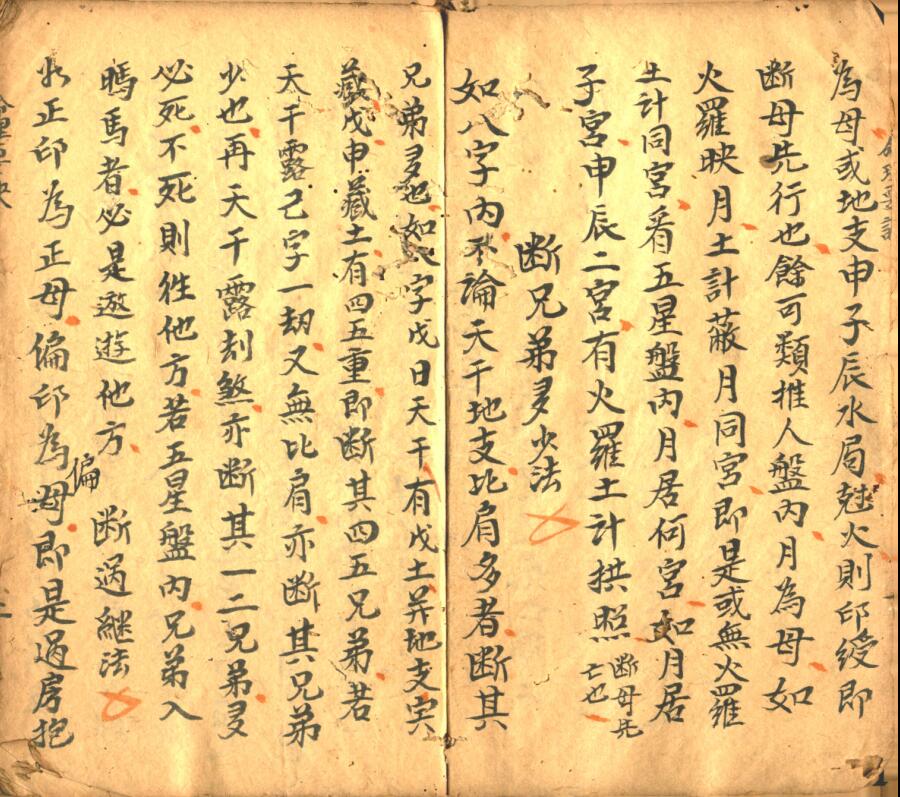 為母或地支申子辰水局尅火則印綬即
断母先行也餘可類推人盤內月為母如
火羅映月土計蔽月同宮即是或無火羅
土計同宮看五星盤內月居何宮如月居
子宮申辰二宮有火羅土計拱照断母先亡也
断兄弟多少法
如八字內不論天干地支比肩多者断其
兄弟多也如八字戊日天干有戊土并地支寅
藏戊申藏土有四五重即断其四五兄弟若
天干露己字一劫又無比肩亦断其兄弟
少也再天干露刦煞亦断其一二兄弟多
必死不死則徃他方若五星盤內兄弟入
馬者必是遨遊他方
断過継法
以正印為正母偏印為偏母即是過房抱